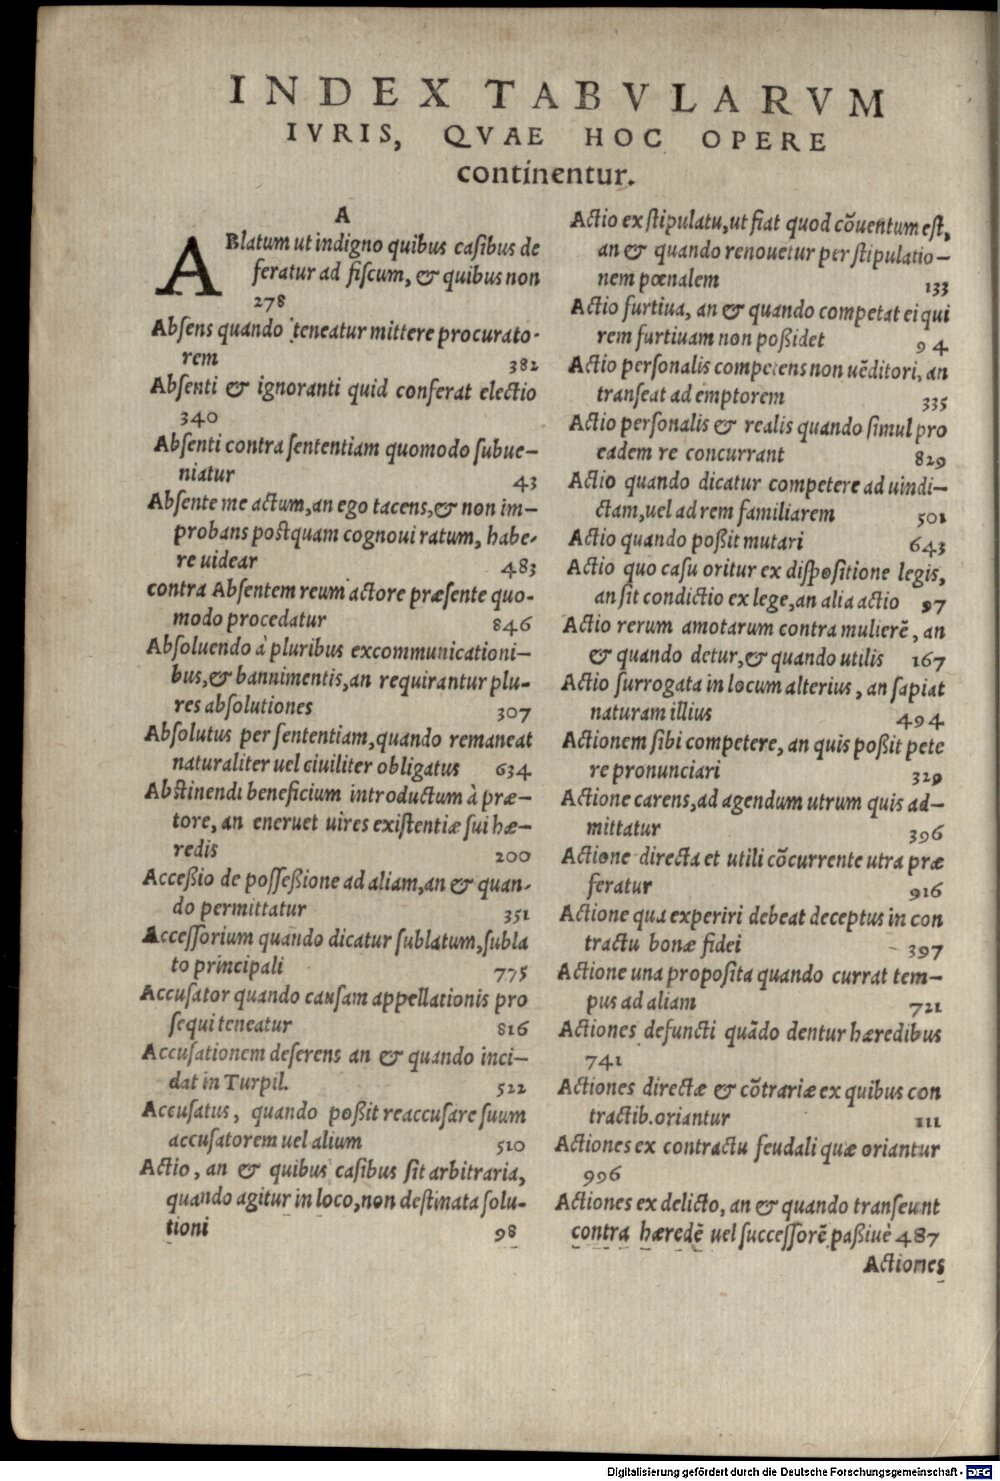 INDEX TABVLARVM
IVRIS, QVAE HOC OPERE
continentur.
A
ABlatum ut indigno quibus casibus de
feratur ad fiscum, & quibus non
278
Absens quando teneatur mittere procurato-
rem 382
Absenti & ignoranti quid conferat electio
340
Absenti contra sententiam quomodo subue-
niatur 43
Absente me actum, an ego tacens, & non im-
probans postquam cognoui ratum, habe-
re uidear 483
contra Absentem reum actore præsente quo-
modo procedatur 846
Absoluendo à pluribus excommunicationi-
bus, & bannimentis, an requirantur plu-
res absolutiones 307
Absolutus per sententiam, quando remaneat
naturaliter uel ciuiliter obligatus 634
Abstinendi beneficium introductum à præ-
tore, an eneruet uires existentiæ sui hæ-
redis 200
Acceßio de possessione ad aliam, an & quan-
do permittatur 351
Accessorium quando dicatur sublatum, subla
to principali 775
Accusator quando causam appellationis pro
sequi teneatur 816
Accusationem deserens an & quando inci-
dat in Turpil. 522
Accusatus, quando poßit reaccusare suum
accusatorem uel alium 510
Actio, an & quibus casibus sit arbitraria,
quando agitur in loco, non destinata solu-
tioni 98
Actio ex stipulatu, ut fiat quod cõuentum est,
an & quando renouetur per stipulatio-
nem pœnalem 133
Actio furtiua, an & quando competat ei qui
rem furtiuam non poßidet 94
Actio personalis competens non uẽditori, an
transeat ad emptorem 335
Actio personalis & realis quando simul pro
eadem re concurrant 829
Actio quando dicatur competere ad uindi-
ctam, uel ad rem familiarem 501
Actio quando poßit mutari 643
Actio quo casu oritur ex dispositione legis,
an sit condictio ex lege, an alia actio 97
Actio rerum amotarum contra mulierẽ, an
& quando detur, & quando utilis 167
Actio surrogata in locum alterius, an sapiat
naturam illius 494
Actionem sibi competere, an quis poßit pete
re pronunciari 329
Actione carens, ad agendum utrum quis ad-
mittatur 396
Actione directa et utili cõcurrente utra præ
feratur 916
Actione qua experiri debeat deceptus in con
tractu bonæ fidei 397
Actione una proposita quando currat tem-
pus ad aliam 721
Actiones defuncti quãdo dentur hæredibus
741
Actiones directæ & cõtrariæ ex quibus con
tractib. oriantur 111
Actiones ex contractu feudali quæ oriantur
996
Actiones ex delicto, an & quando transeunt
contra hæredẽ uel successorẽ paßiuè 487
Actiones
Digitalisierung gefördert durch die Deutsche Forschungsgemeinschaft - DFG